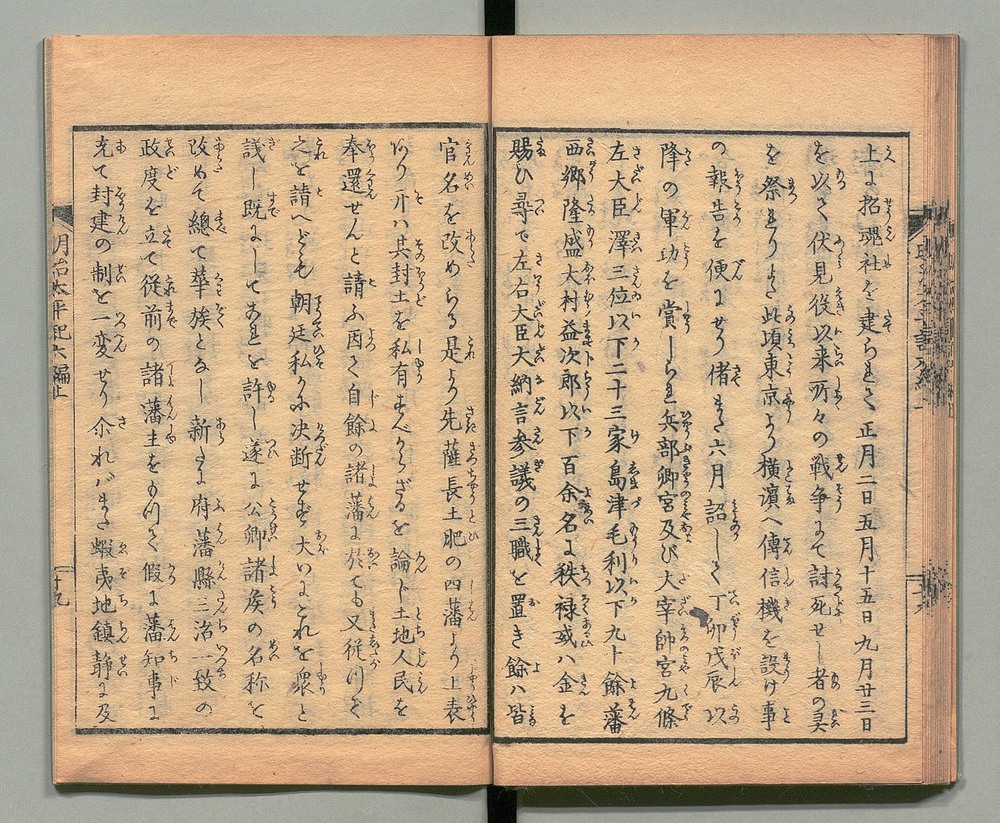 上に招魂社を建られて正月二日五月十五日九月廿三日
を以て伏見役以来所々の戦争にて討死せし者の霊
を祭るりしが此頃東京より横濱へ傳信機を設け事
の報告を便にせり偖また六月詔して丁卯戊辰以
降の軍功を賞しられ兵部卿宮及び大宰帥宮九條
左大臣澤三位以下二十三家島津毛利以下九十餘藩
西郷隆盛大村益次郎以下百余名に秩禄或ハ金を
賜ひ尋で左右大臣大納言参議の三職を置き餘ハ皆
官名を改めらる是より先薩長土肥の四藩より上表
ありて其封土を私有すべからざるを論じ土地人民を
奉還せんと請ふ因て自餘の諸藩に於ても又従つて
之を請へども朝廷私かに决断せず大いにこれを衆と
議し既にして之を許し遂に公卿諸侯の名称を
改めて總て華族となし新たに府藩縣三治一致の
政度を立て従前の諸藩主をもつて假に藩知事に
充て封建の制を一変せり尓れバまた蝦夷地鎮静に及
明治太平記六編上
十九